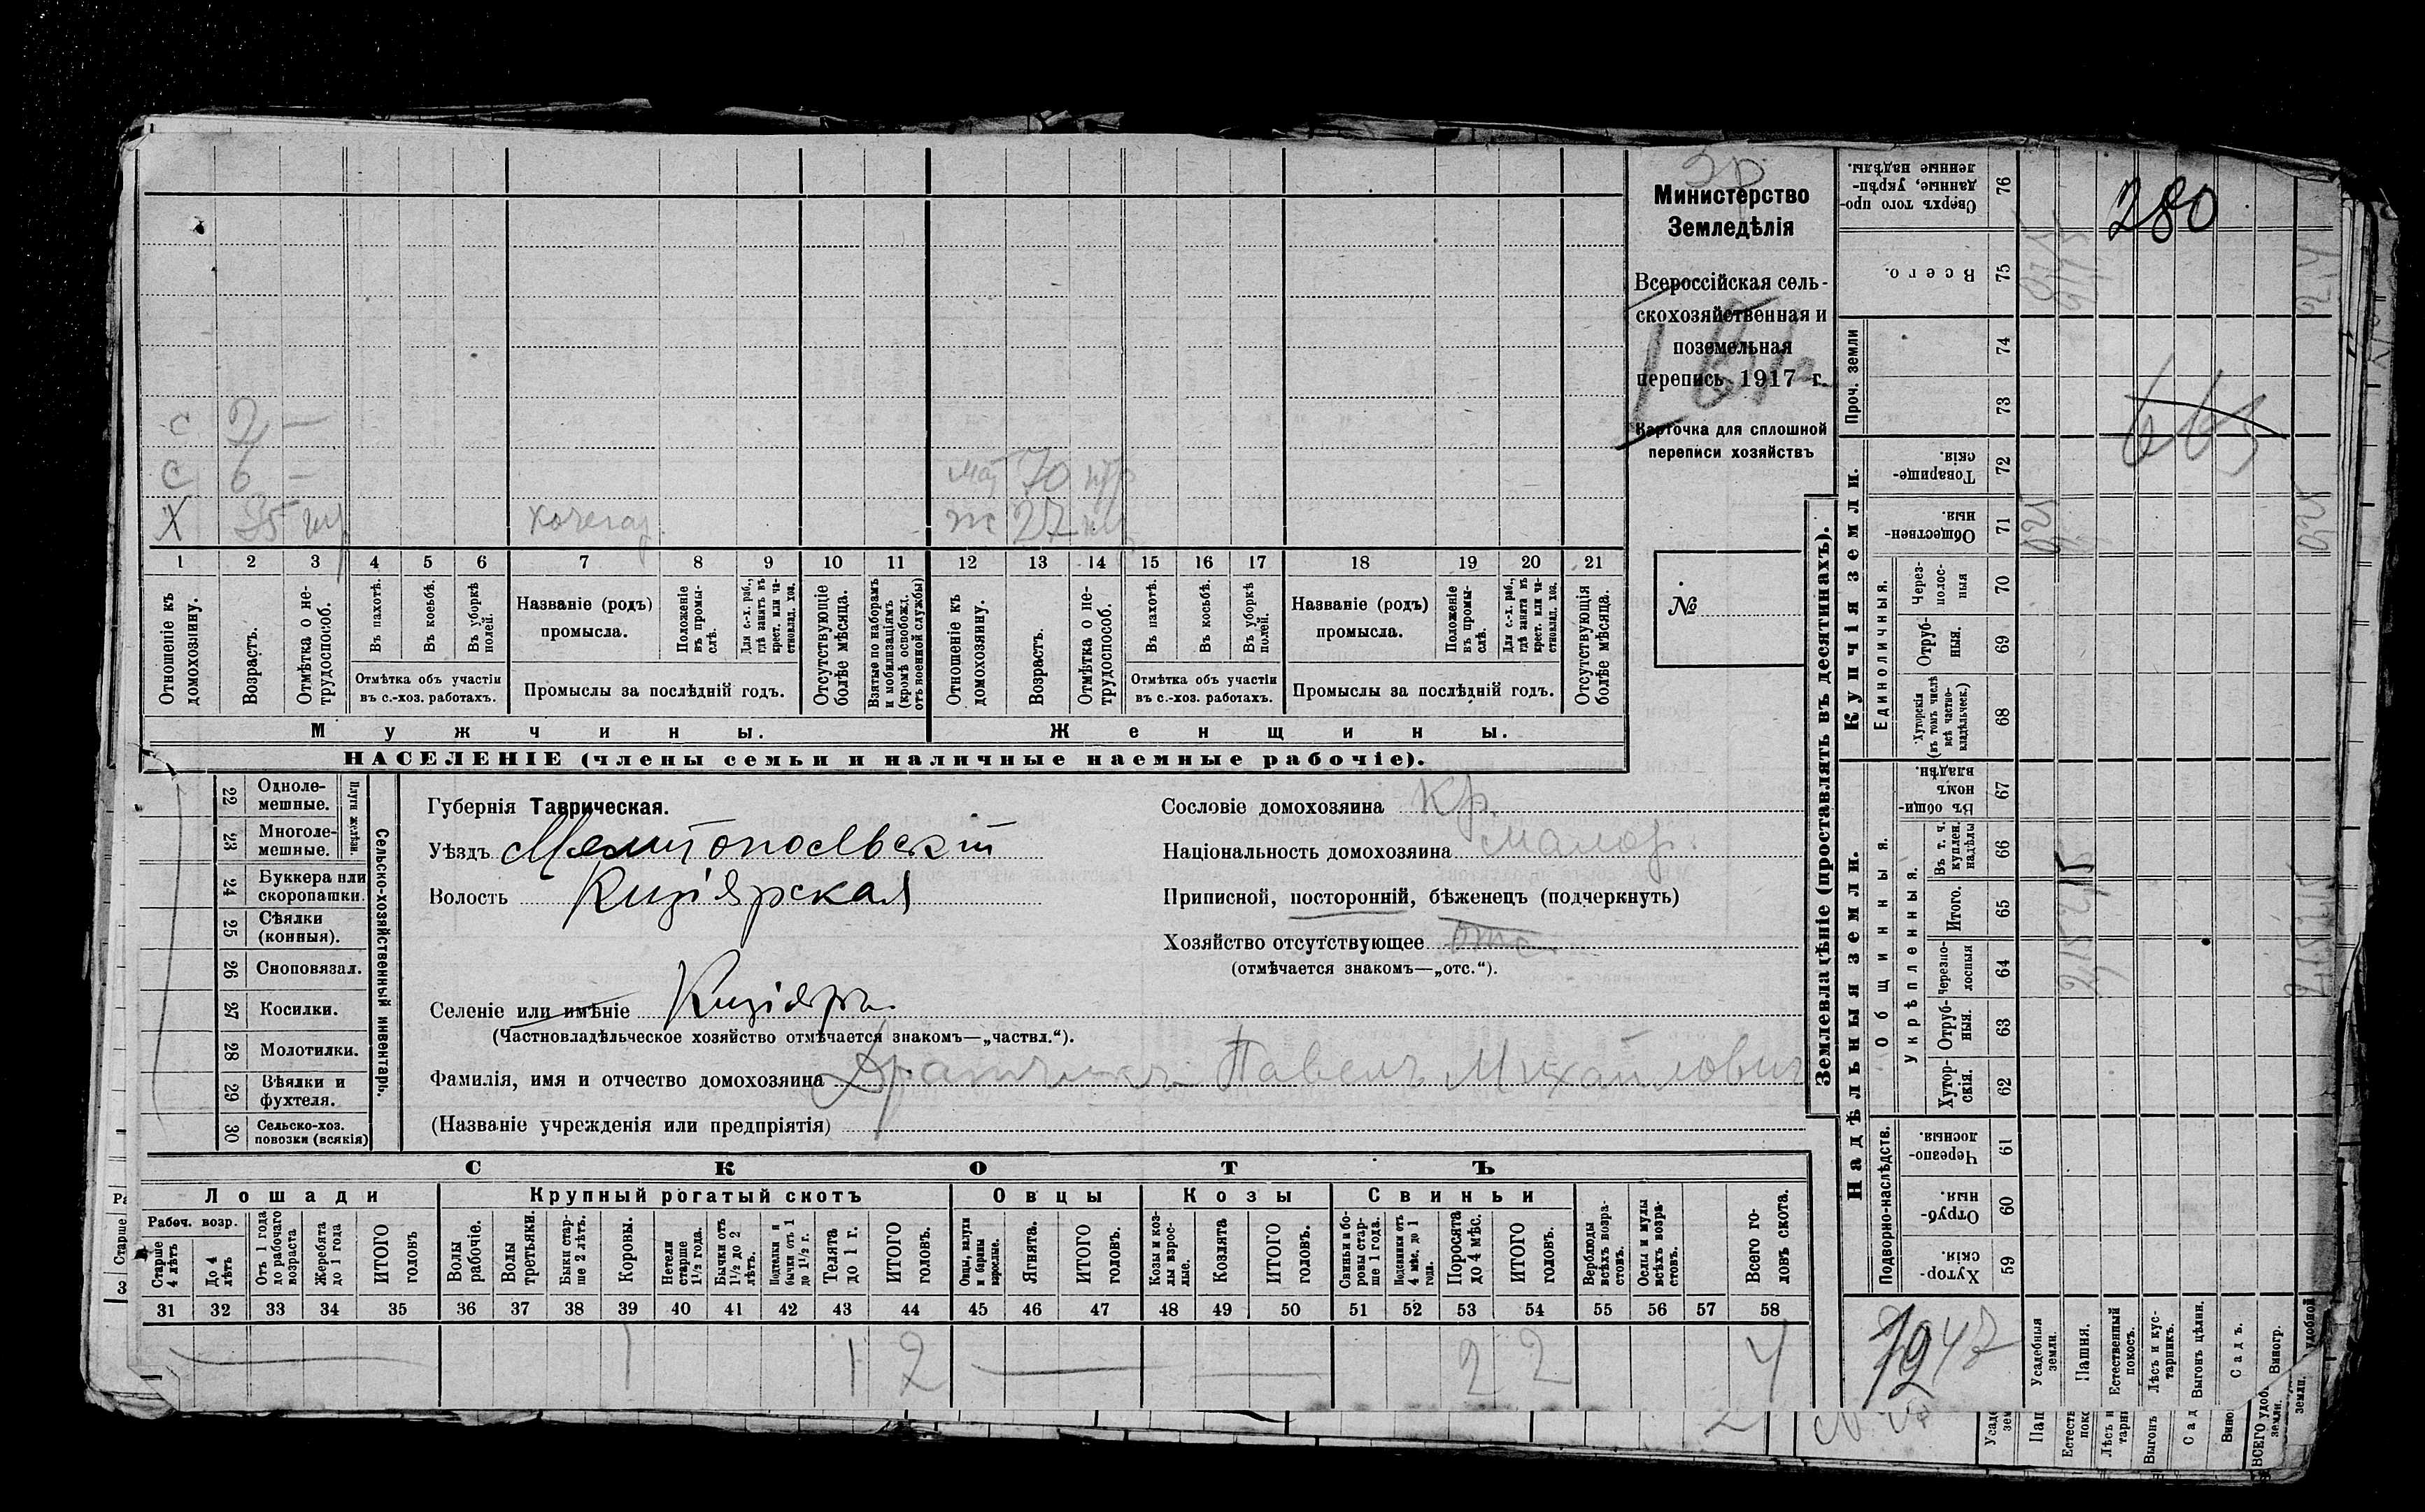 280
Министерство
Земледѣлія
Всероссійская сель-
скохозяйственная и
поземельная
перепись 1917 г.
Карточка для сплошной
переписи хозяйствъ
№
с 2 —
с 6 —
мат 70
Х 35
ж 27
1 2 3 4 5 6 7 8 9 10 11 12 13 14 15 16 17 18 19 20 21
Отношеніе къ домохозяину.
Возрастъ.
Отмѣтка о не-трудоспособ.
Въ пахотѣ.
Въ косьбѣ.
Въ уборкѣ полей.
Отмѣтка объ участіи
въ с.-хоз. работахъ.
Названіе (родъ)
промысла.
Положеніе въ промы-слѣ.
Для с.-х. раб., гдѣ занятъ въ крест. или ча-стновлад. хоз.
Промыслы за послѣдній годъ.
Отсутствующіе болѣе мѣсяца.
Взятые по наборамъ и мобилизаціямъ (кромѣ освобожд. отъ военной службы)
Отношеніе къ домохозяину.
Возрастъ.
Отмѣтка о не-трудоспособ.
Въ пахотѣ.
Въ косьбѣ.
Въ уборкѣ полей.
Отмѣтка объ участіи
въ с.-хоз. работахъ.
Названіе (родъ)
промысла.
Положеніе въ промы-слѣ.
Для с.-х. раб., гдѣ занята въ крест. или ча-стновлад. хоз.
Промыслы за послѣдній годъ.
Отсутствующія болѣе мѣсяца.
Мужчины.
Женщины.
НАСЕЛЕНІЕ (члены семьи и наличные наемные рабочіе).
Сельско-хозяйственный инвентарь.
Плуги желѣзн.
22 Одноле-мешные.
23 Многоле-мешные.
24 Буккера или скоропашки.
25 Сѣялки (конныя).
26 Сноповязал.
27 Косилки.
28 Молотилки.
29 Вѣялки и фухтеля.
30 Сельско-хоз. повозки (всякія)
Губернія Таврическая.
Уѣздъ Мелитопольскій
Волость Кизіярская
Селеніе или имѣніе Кизіяръ
(Частновладѣльческое хозяйство отмѣчается знакомъ—„частвл.“).
Фамилія, имя и отчество домохозяина Павелъ Михайлович
(Названіе учрежденія или предпріятія)
Сословіе домохозяина Кр.
Національность домохозяина Малор.
Приписной, посторонній, бѣженецъ (подчеркнуть)
Хозяйство отсутствующее отс.
(отмѣчается знакомъ—„отс.“).
СКОТЪ
Лошади
Крупный рогатый скотъ
Овцы
Козы
Свиньи
Рабоч. возр.
Старше 4 лѣтъ
До 4 лѣтъ
Отъ 1 года до рабочаго возраста
Жеребята до 1 года
ИТОГО головъ
Волы рабочіе.
Волы третьяки.
Быки стар-ше 2 лѣтъ.
Коровы.
Нетели старше 1½ года.
Бычки отъ 1½ до 2 лѣтъ.
Подтелки и бычки отъ 1 до 1½ г.
Телята до 1 г.
ИТОГО головъ.
Овцы, валухи и бараны взрослые.
Ягнята.
ИТОГО головъ.
Козы и коз-лы взрос-лые.
Козлята
ИТОГО головъ.
Свиньи и бо-ровы стар-ше 1 года.
Подсвинки отъ 4 мѣс. до 1 года.
Поросята до 4 мѣс.
ИТОГО головъ.
Верблюды всѣхъ возра-стовъ.
Ослы и мулы всѣхъ возра-стовъ.
Всего го-ловъ скота.
31 32 33 34 35 36 37 38 39 40 41 42 43 44 45 46 47 48 49 50 51 52 53 54 55 56 57 58
1 1 2 2 2 4
Землевладѣніе (проставлять въ десятинахъ).
Надѣльныя земли.
Купчія земли.
Проч. земли
Подворно-наслѣдств.
Общинныя.
Укрѣпленныя.
Единоличныя.
Сверхъ того про-данные, укрѣп-ленные надѣлы. 76
Всего. 75
74
73
Товарище-скія. 72
Обществен-ныя. 71
Через-полос-ныя 70
Отруб-ныя. 69
Хуторскія (въ томъ числѣ всѣ частно-владѣльческ.) 68
Въ общи-номъ владѣн. 67
Въ т. ч. куплен. надѣлы 66
Итого. 65
Черезпо-лосныя 64
Отруб-ныя. 63
Хутор-скія. 62
Черезпо-лосныя 61
Отруб-ныя. 60
Хутор-скія. 59
Усадебныя земли.
Пашня.
Естественный покосъ.
Лѣсъ и кус-тарникъ.
Выгонъ цѣлин.
Садъ.
Виногр.
удобной земли.
ВСЕГО удоб. земли.